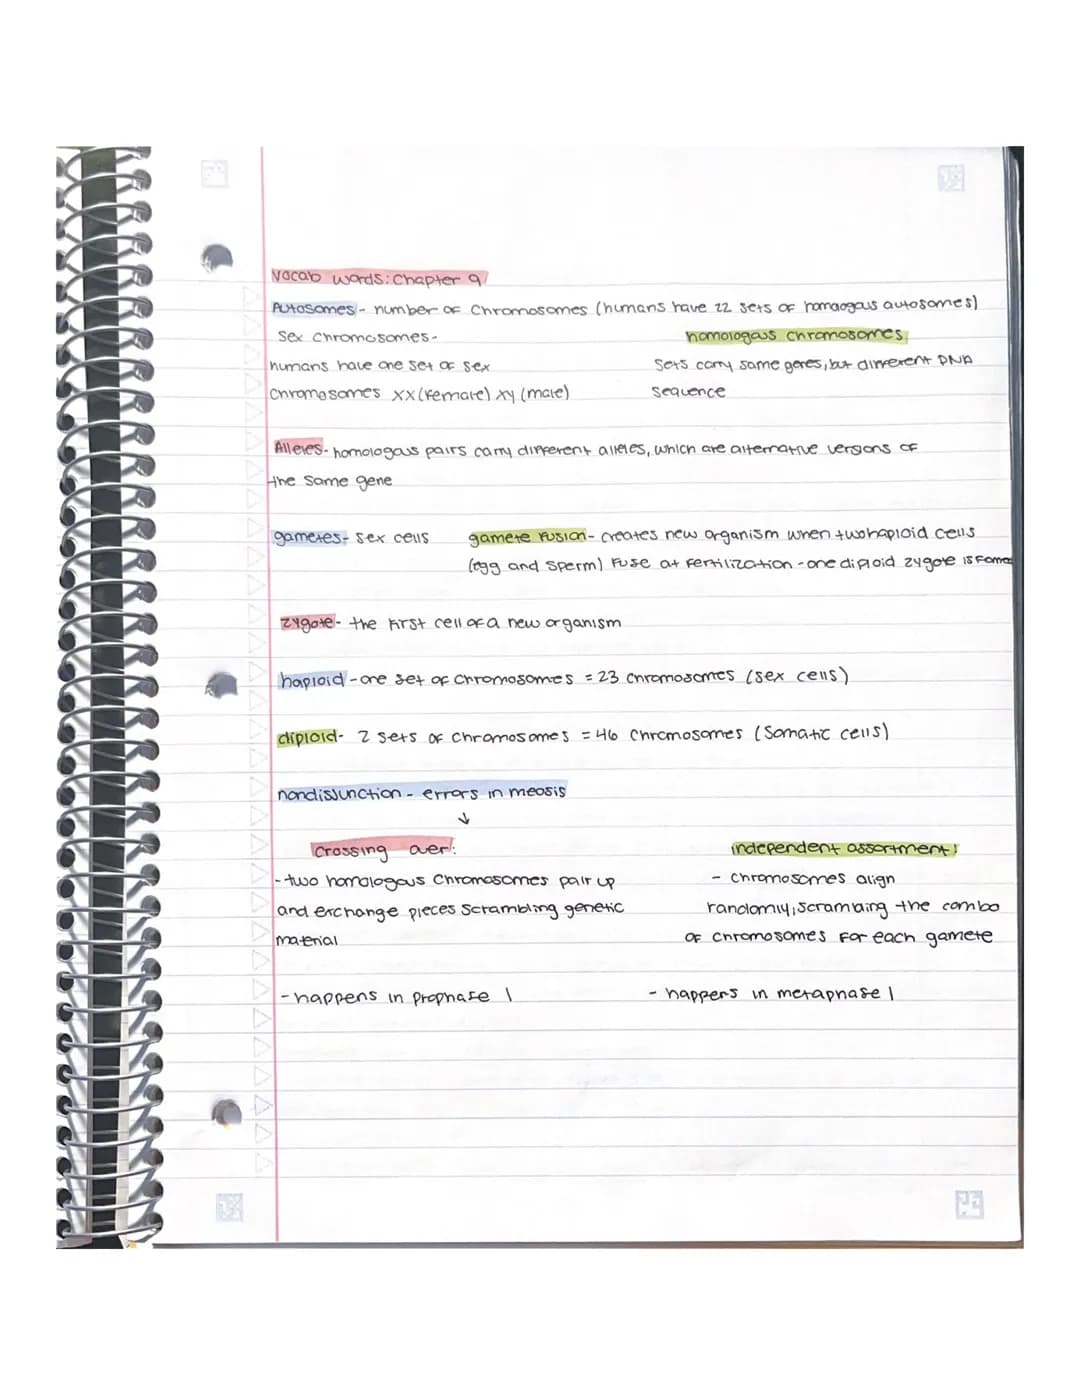 Vocab words: Chapter 9
Autosomes - number of Chromosomes (humans have 22 sets of homologous autosomes)
Sex Chromosomes-
homologous chromosomes
humans have one set of sex
Sets carry same genes, but different DNA
chromosomes XX (female) xy (male)
Sequence
Alleles- homologous pairs carry different alleles, which are alternative versions of
the same gene
gametes- sex cells
gamete fusion- creates new organism when two haploid cells
(egg and sperm) fuse at fertilization - one diploid zygote is
zygote- the first cell of a new organism
haploid - one set of chromosomes = 23 chromosomes (sex cells)
diploid- 2 sets of chromosomes = 46 chromosomes (Somatic cells)
nondisjunction - errors in meosis
↓
Crossing over:
independent assortment:
- two homologous Chromosomes pair up
- chromosomes align
and exchange pieces scrambling genetic
randomly, scrambling the combo
material
of chromosomes for each gamete
- happens in Prophase 1
- happers in metaphase 1